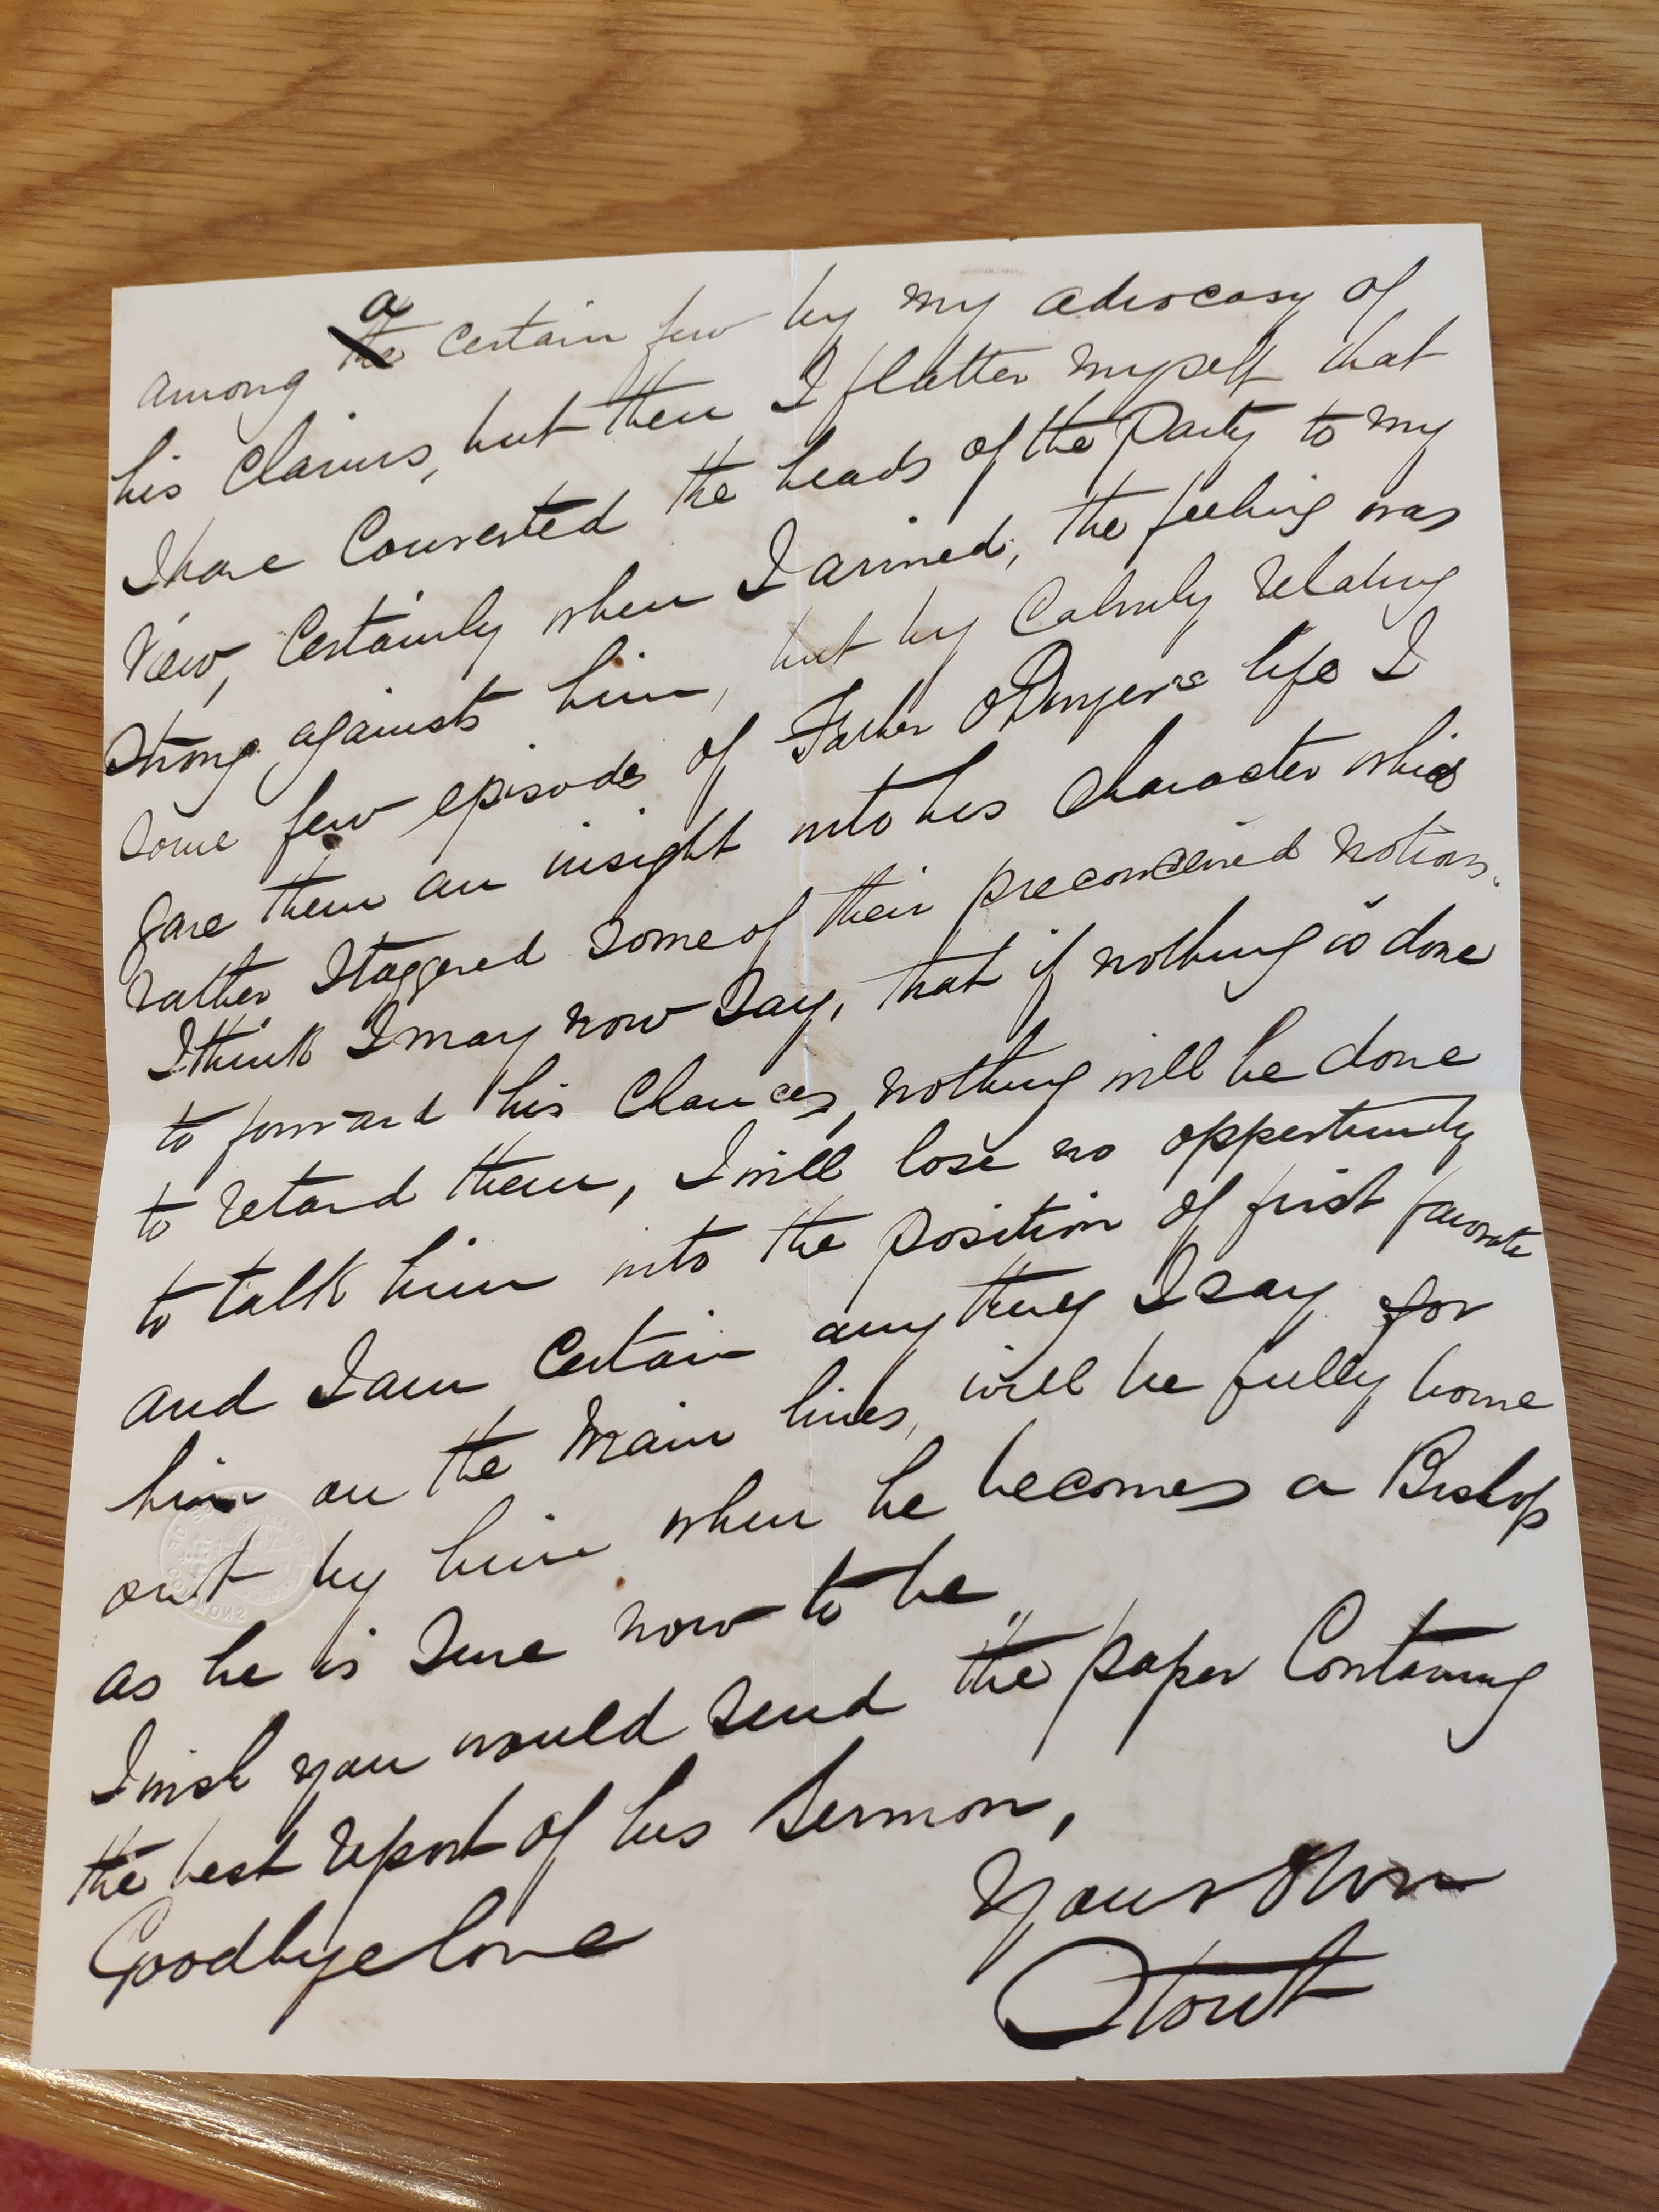 a
among the certain few by my advocasy of
his claims, but then I flatter myself that
I have Converted the heads of the Party to my
View, Certainly when I arrived, the feeling was
Strong against him, but by Calmly relating
Some few episodes of Father O'Dwyer's life I
gave them an insight into his Character which
rather Staggered Some of their preconceived notions.
I think I may now Say, that if nothing is done
to forward his Chances, nothing will be done
to retard them, I will lose no oppertunity
to talk him into the position of first favorite
and I am Certain any thing I say for
him on the Main lines, will be fully borne
out by him when he becomes a Bishop
as he is Sure now to be
I wish you would Send the paper Containing
the best report of his Sermon,
Goodbye love
Your Own
Stout